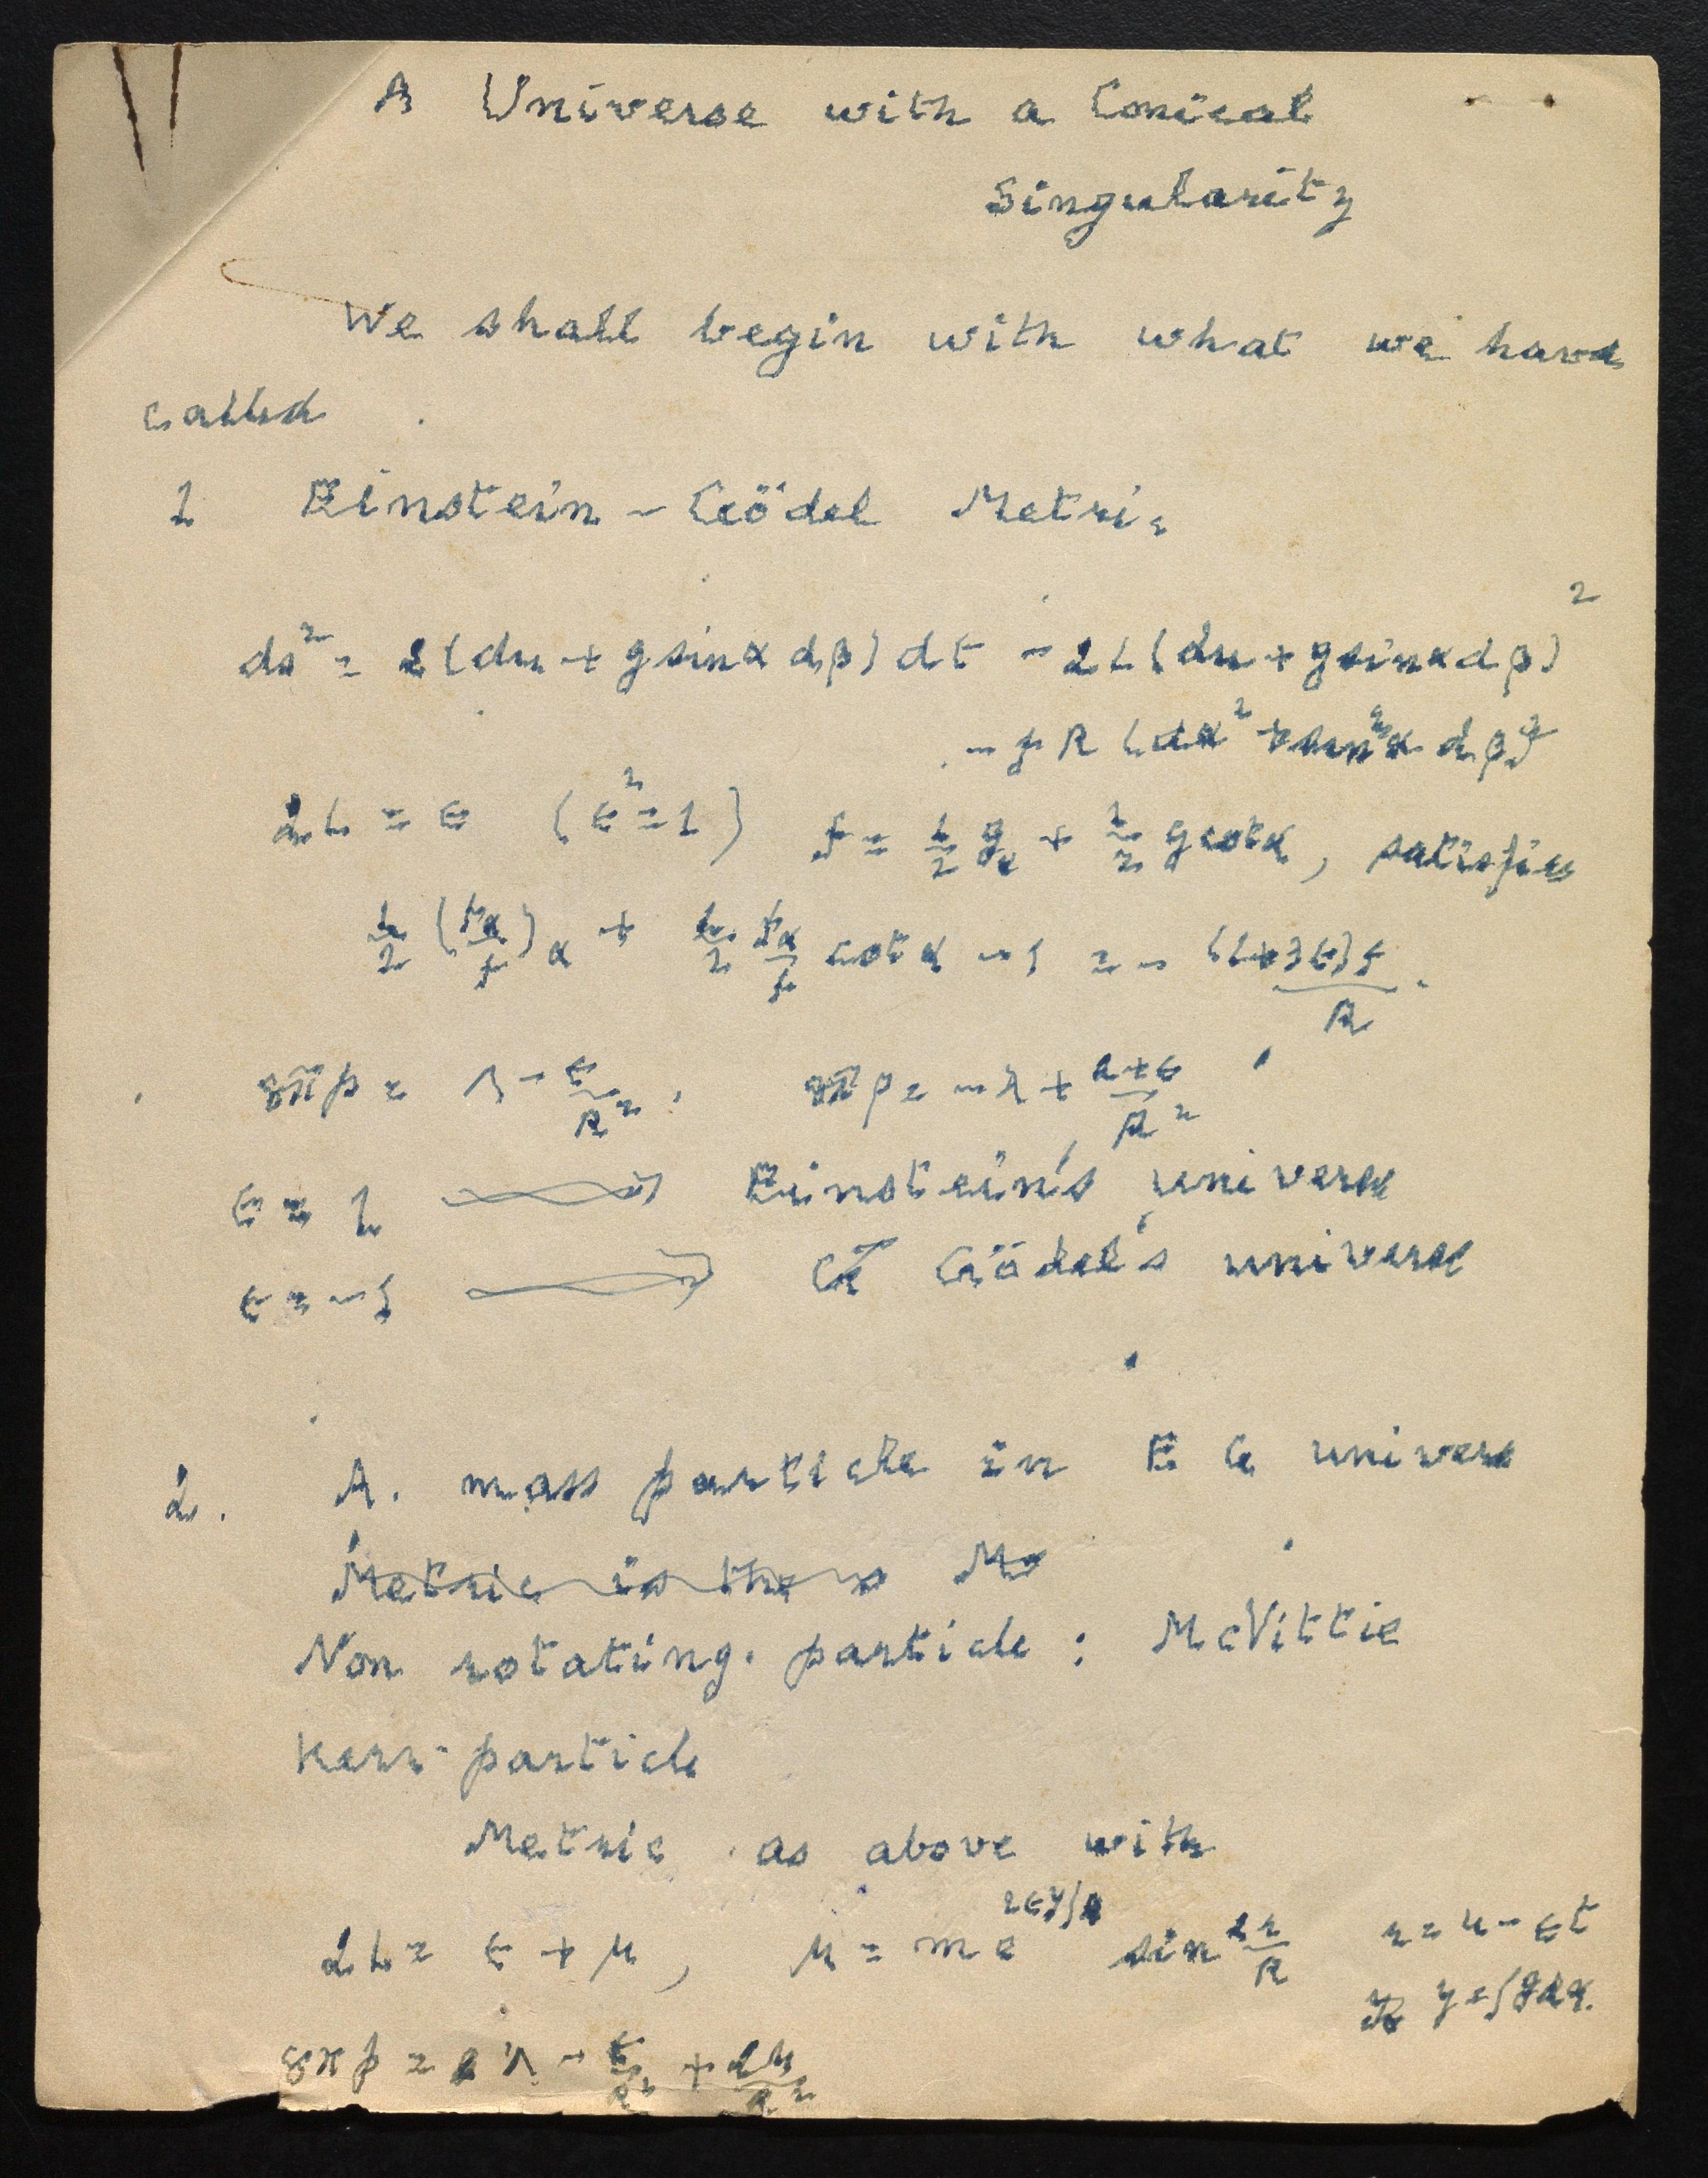 A Universe with a Conical
Singularity
We shall begin with what we have
called
1 Einstein - Gödel Metric
ds² = 2(du + g sinα dβ) dt - 2L(du + g sinα dβ)²
- f R (dα² + sin²α dβ²)
2L = ε (ε² = 1) f = ½ gα + ½ g cotα, satisfies
½ (fα/f)α + ½ fα/f cotα - 1 = - (1+3ε)f/R.
8πp = Λ - ε/R², 8πρ = -Λ + 2+ε/R²
ε = 1 ⟹ Einstein's universe
ε = -1 ⟹ Gödel's universe
2. A. mass particle in E G universe
Metric is the M
Non rotating. particle : McVittie
Kerr particle
Metric as above with
2L = ε + μ, μ = m e^2εy/R sin 2r/R r = u - εt
y = ∫g dα.
8πp = Λ - ε/R² + 2μ/R²